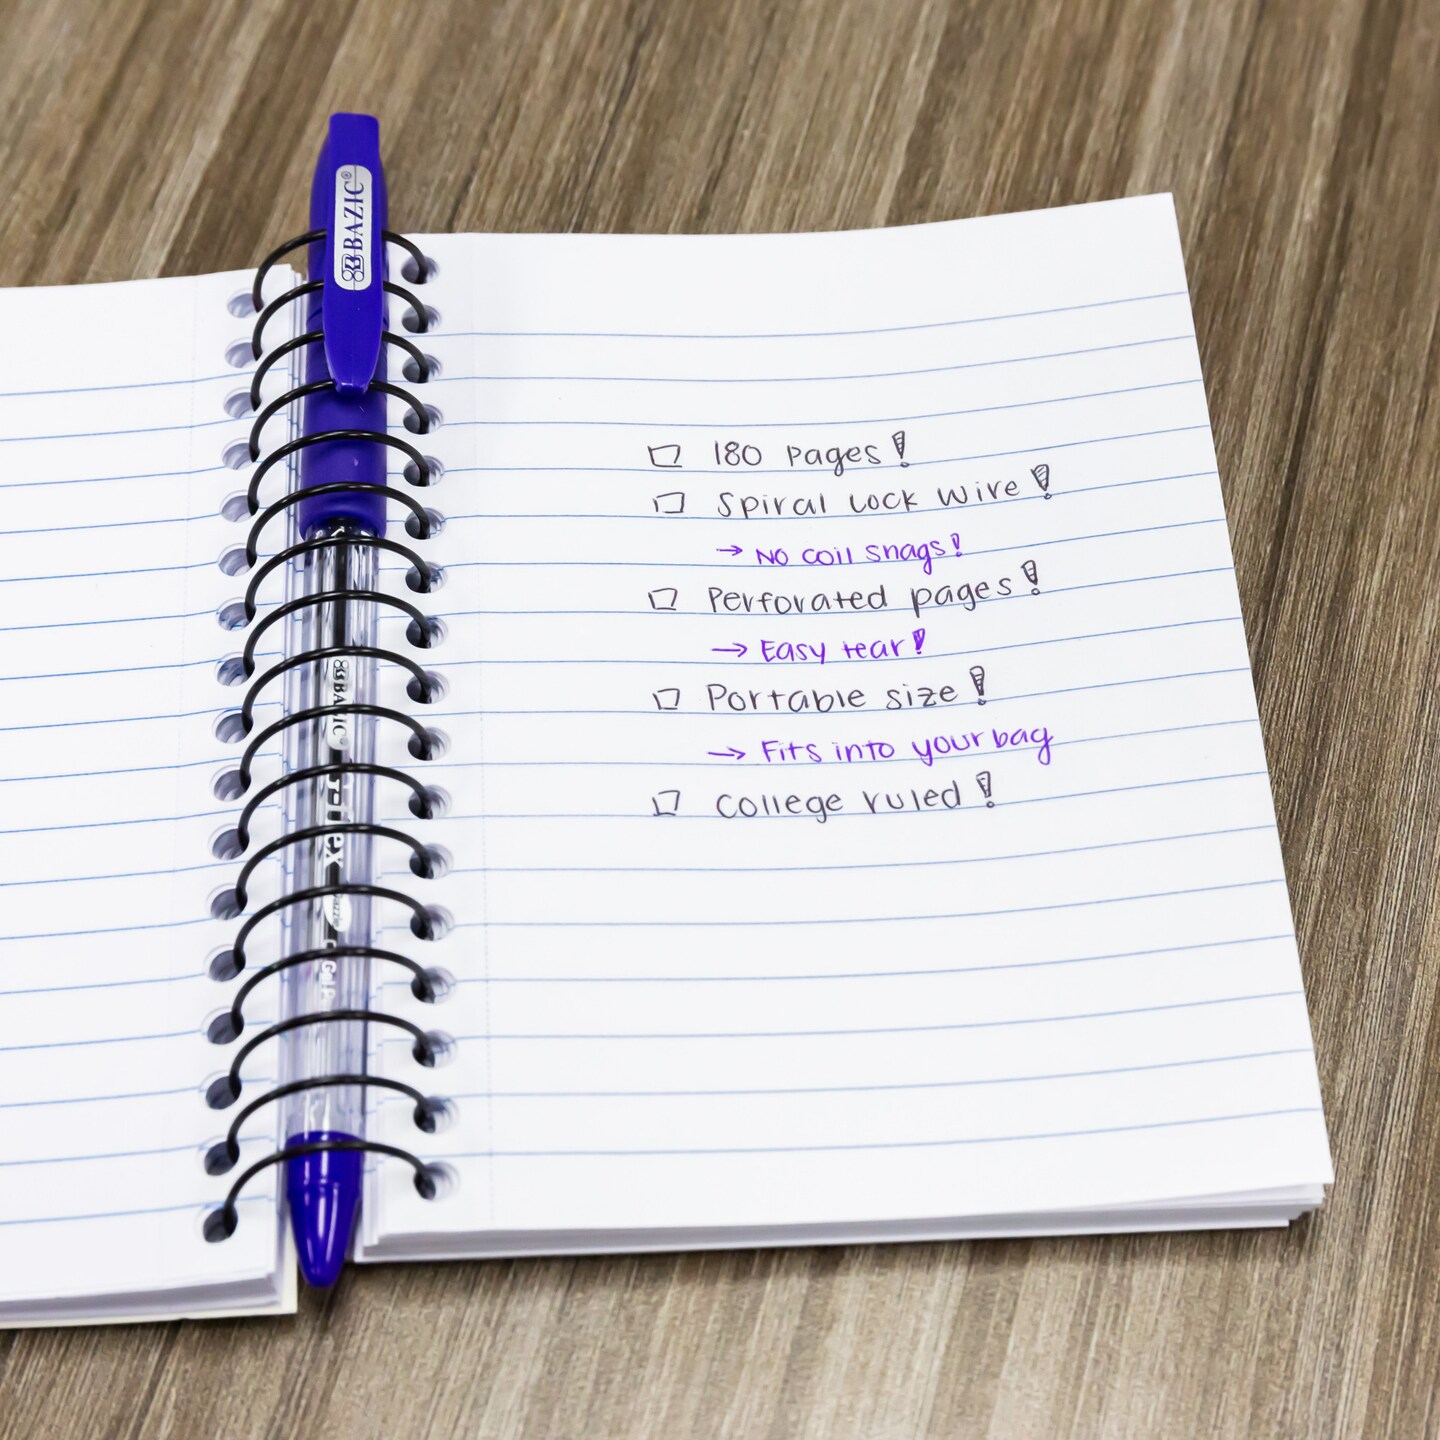 BAZIC®
BAZIC®
180 pages!
Spiral lock wire!
→ No coil snags!
Perforated pages!
→ Easy tear!
Portable size!
→ Fits into your bag
College ruled!